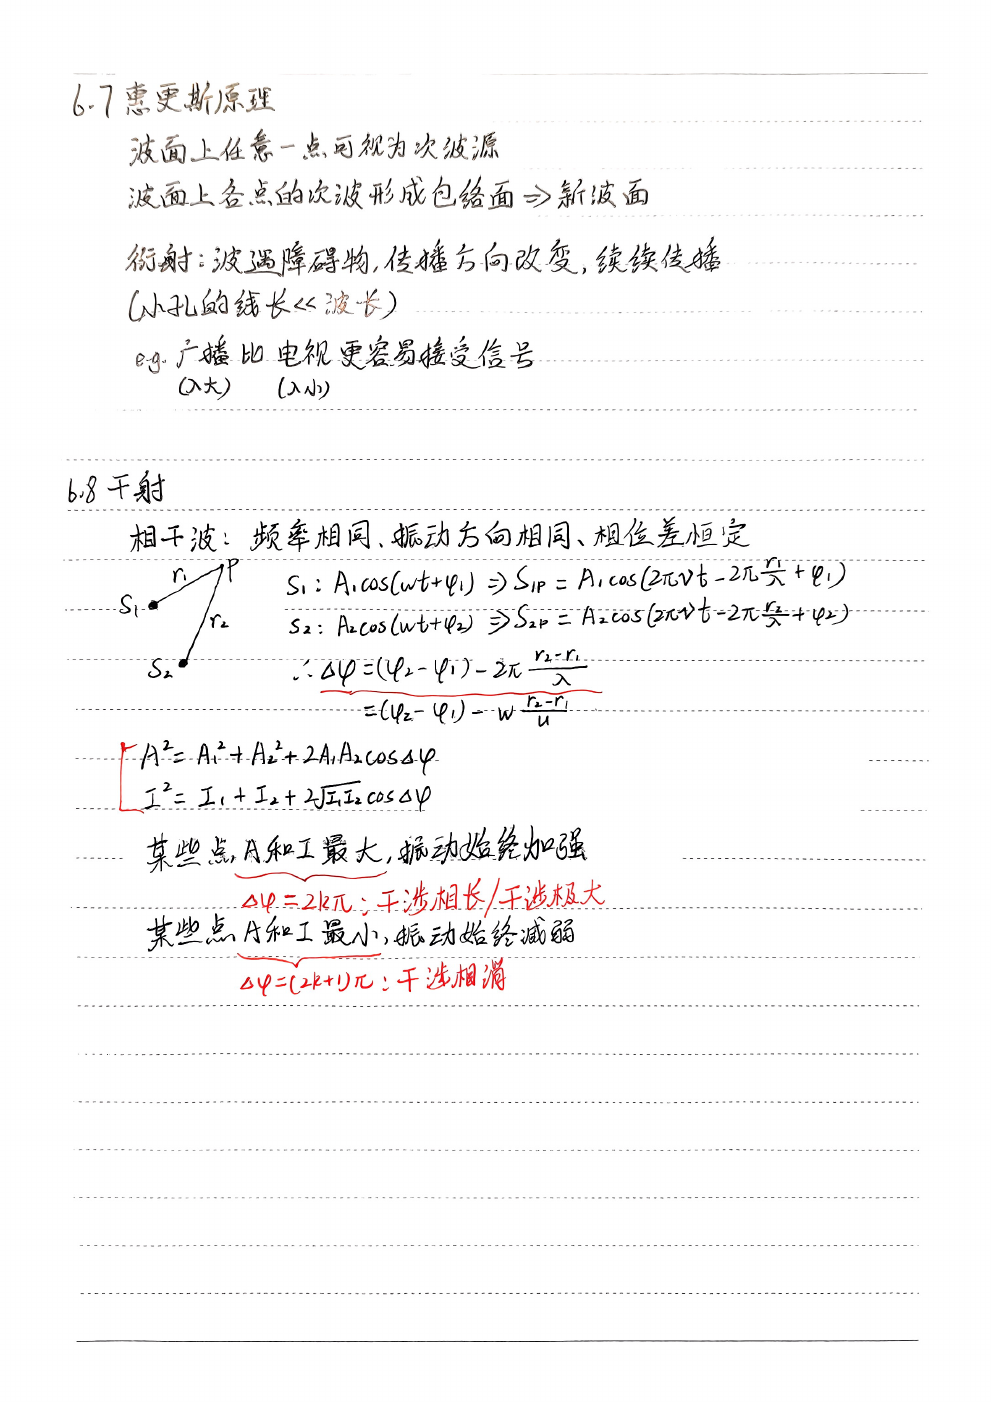 6.7 惠更斯原理
波面上任意一点可视为次波源
波面上各点的次波形成包络面⇒新波面
衍射：波遇障碍物，传播方向改变，续续传播
（小孔的线长<<波长）
e.g. 广播比 电视更容易接受信号
（λ大） （λ小）
6.8 干射
相干波：频率相同、振动方向相同、相位差恒定
r₁ P
S₁
r₂
S₂
S₁: A₁cos(wt+φ₁) ⇒ S₁P = A₁cos(2πνt-2π r₁/λ + φ₁)
S₂: A₂cos(wt+φ₂) ⇒ S₂P = A₂cos(2πνt-2π r₂/λ + φ₂)
∴ Δφ=(φ₂-φ₁)-2π (r₂-r₁)/λ
=(φ₂-φ₁)-w (r₂-r₁)/u
A²= A₁²+A₂²+2A₁A₂cosΔφ
I²= I₁+I₂+2√I₁I₂ cosΔφ
某些点A和I最大，振动始终加强
Δφ=2kπ：干涉相长/干涉极大
某些点A和I最小，振动始终减弱
Δφ=(2k+1)π：干涉相消